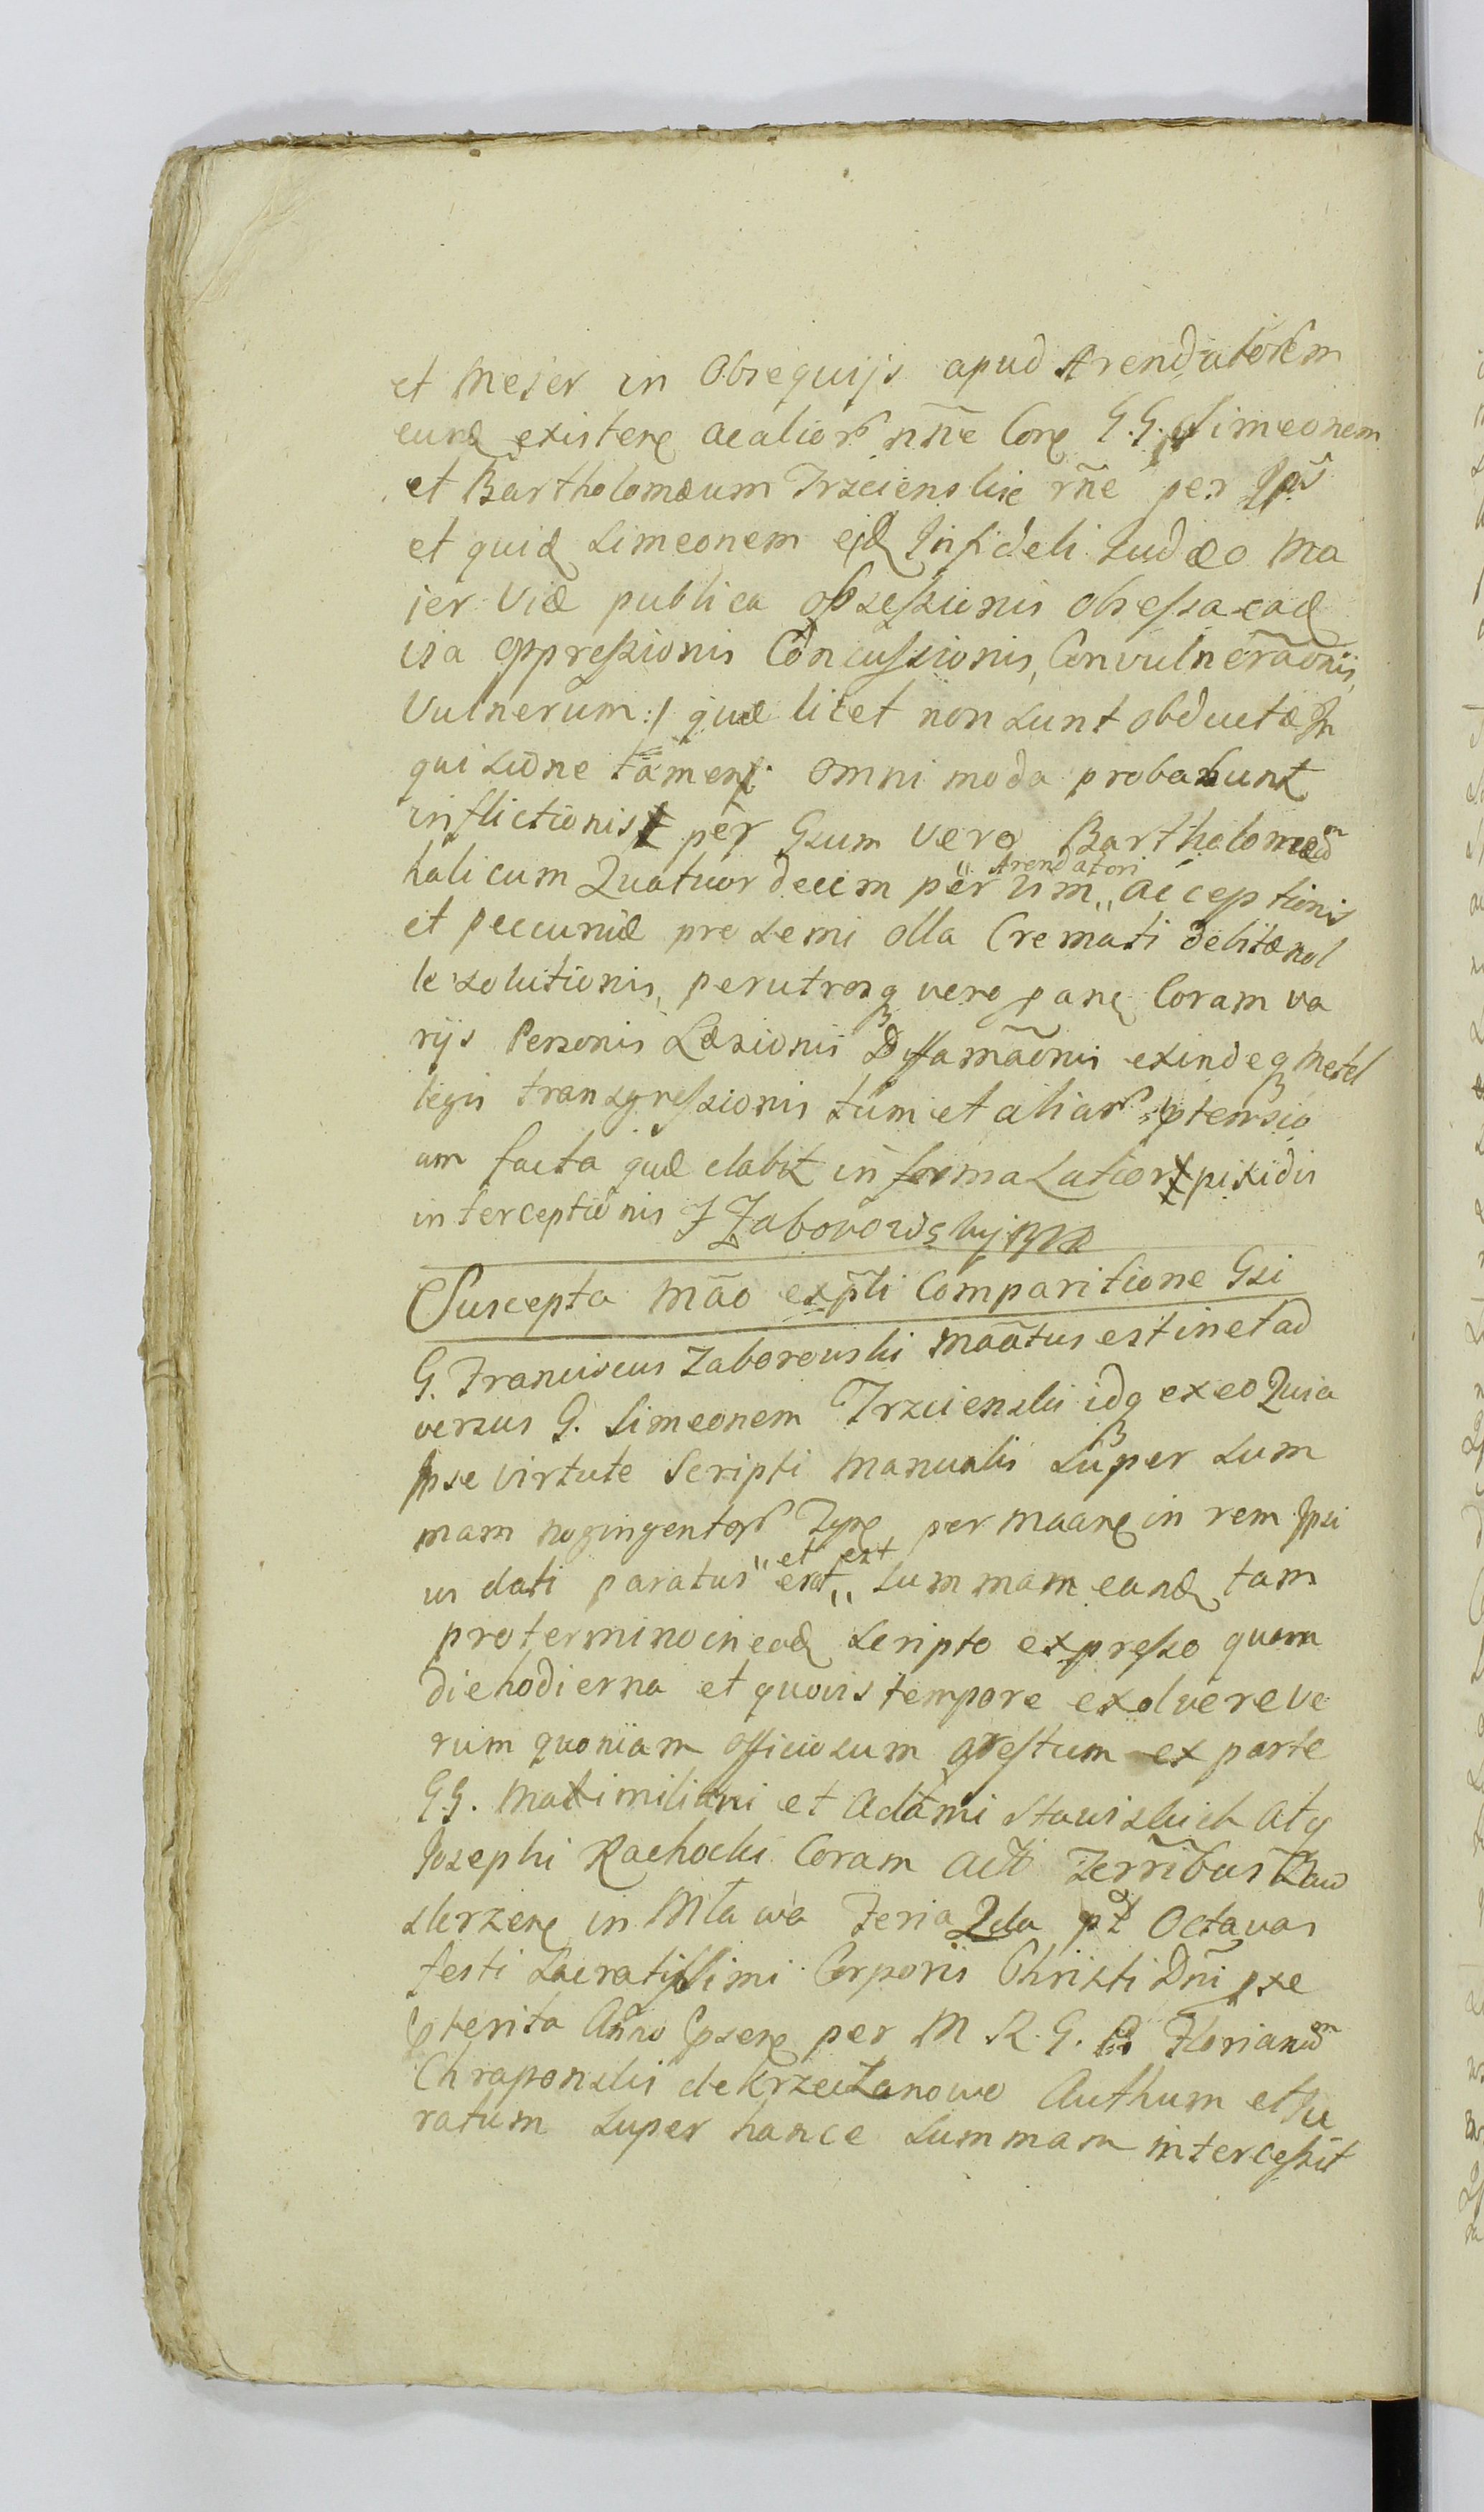 et Mejer in Obsequijs apud Arendatorem
eund existen ac alior nne Con G.G. Simeonem
et Bartholomæum Trzcienskie rñe per Ipõs
et quid Simeonem ejd Infideli Judæo Ma
jer viæ publica obsessionis obsessa ead
via oppressionis Concussionis, Convulnerãonis,
Vulnerum :/ quæ licet non sunt obducta In
quisitione tamen omni moda probabunt
inflictionis per Gsum vero Bartholomeũ
halicum Quatuordecim per vim „Arendatori„ acceptionis
et peccuniæ pro semi olla Cremati debitæ nol
le solutionis, per utrosq vero pane Coram va
rijs Personis Læsionis Diffamãonis exindeq
legis transgressionis tum et aliar ptensio
um facta quæ dabit in forma Latiori pixidis
interceptionis F Zaborowski mp
Suscepta Mão exp̃li Comparitione Gsi
G. Franciscus Zaborowski Mãatus est in et ad
versus G. Simeonem Trzcienski idq ex eo Quia
Ipse virtute Scripti Manualis super sum
mam nogingentor per maane in rem Ipsi
us dati paratus „et est„ erat summam eand tam
pro termino in eod scripto expresso quam
die hodierna et quovis tempore exolvere ve
rum quoniam officiosum arestum ex parte
GG. Maximiliani et Adami Stawiskich atq
Josephi Rachocki Coram Actis Terr̃ibus Zaw
skrzen in Mława Feria 2da pt Octavas
festi Sacratissimi Corporis Christi Dñi pxe
pterita Anno Ipsen per M R. G. Florianũ
Chraponski de Krzeczanowo Authum et Ju
ratum super hance summam intercessit